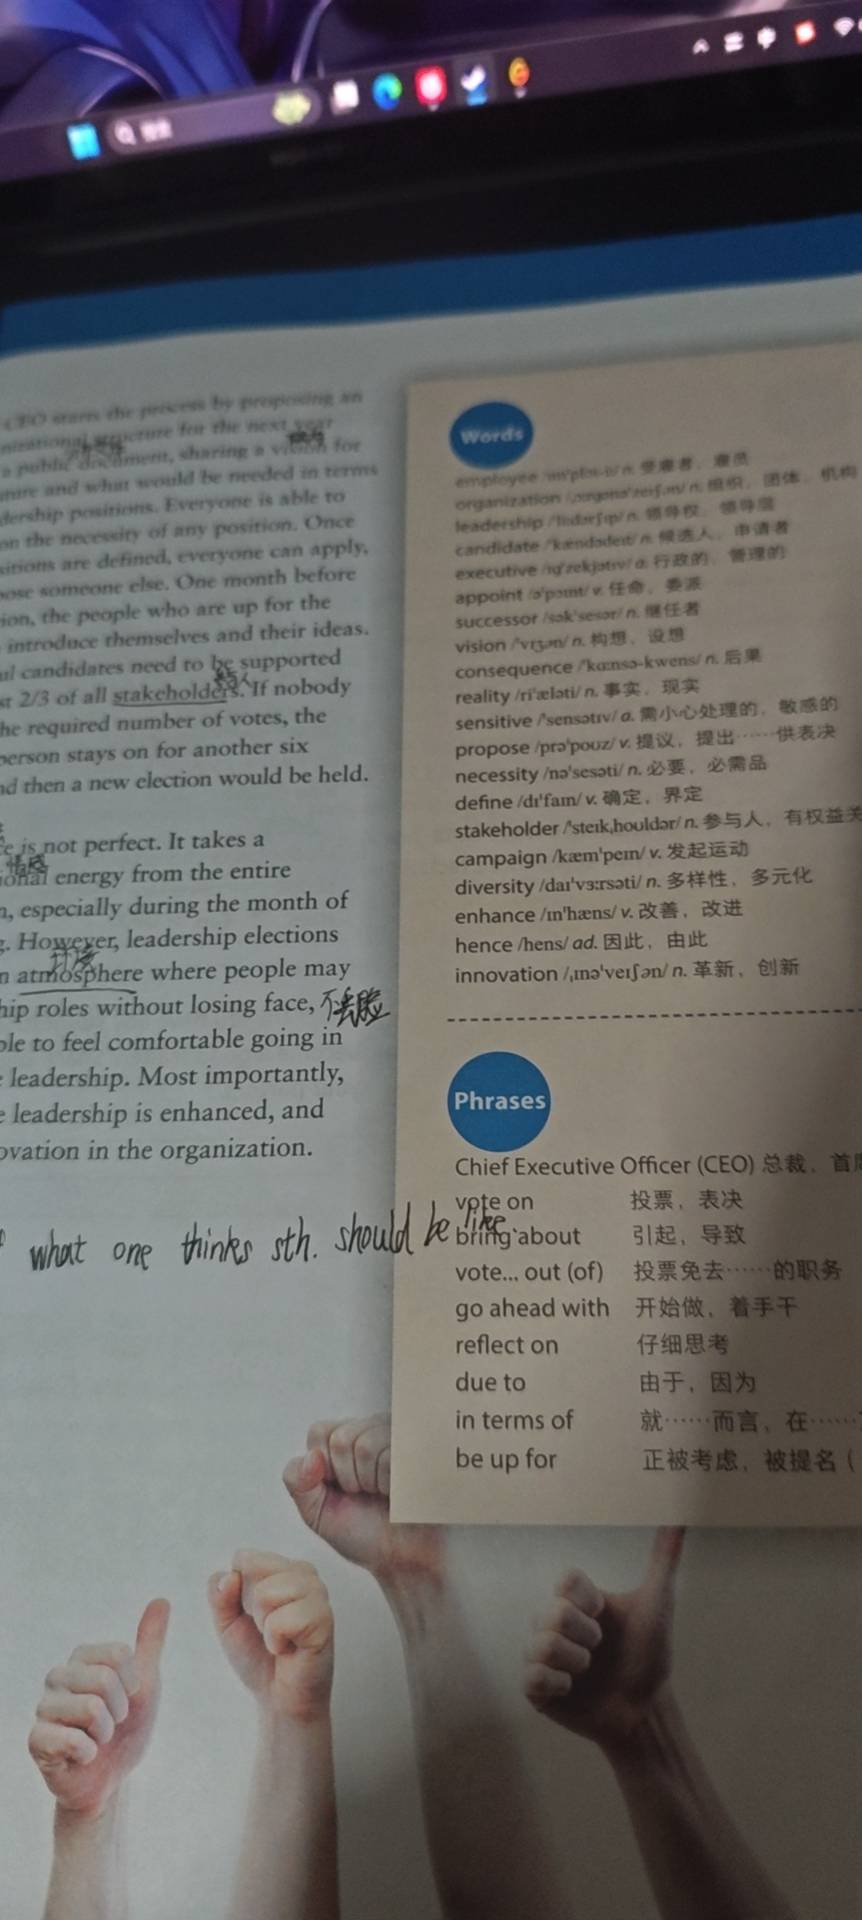 搜索
CEO starts the process by proposing an
structure for the next year
a public document, sharing a vision for
and what would be needed in terms
positions. Everyone is able to
on the necessity of any position. Once
are defined, everyone can apply,
someone else. One month before
the people who are up for the
introduce themselves and their ideas.
candidates need to be supported
st 2/3 of all stakeholders. If nobody
he required number of votes, the
person stays on for another six
nd then a new election would be held.
e is not perfect. It takes a
情感
ional energy from the entire
n, especially during the month of
g. However, leadership elections
环境
n atmosphere where people may
hip roles without losing face, 不丢脸
ple to feel comfortable going in
leadership. Most importantly,
e leadership is enhanced, and
ovation in the organization.
what one thinks sth. should be like.
Words
employee n. 受雇者，雇员
organization n. 组织，团体，机构
leadership n. 领导权，领导层
candidate /ˈkændədeɪt/ n. 候选人，申请者
executive /ɪɡˈzekjətɪv/ a. 行政的，管理的
appoint /əˈpɔɪnt/ v. 任命，委派
successor /səkˈsesər/ n. 继任者
vision /ˈvɪʒən/ n. 构想，设想
consequence /ˈkɑːnsə-kwens/ n. 后果
reality /riˈæləti/ n. 事实，现实
sensitive /ˈsensətɪv/ a. 需小心处理的，敏感的
propose /prəˈpoʊz/ v. 提议，提出……供表决
necessity /nəˈsesəti/ n. 必要，必需品
define /dɪˈfaɪn/ v. 确定，界定
stakeholder /ˈsteɪkˌhoʊldər/ n. 参与人，有权益关
campaign /kæmˈpeɪn/ v. 发起运动
diversity /daɪˈvɜːrsəti/ n. 多样性，多元化
enhance /ɪnˈhæns/ v. 改善，改进
hence /hens/ ad. 因此，由此
innovation /ˌɪnəˈveɪʃən/ n. 革新，创新
Phrases
Chief Executive Officer (CEO) 总裁，首
vote on 投票，表决
bring about 引起，导致
vote... out (of) 投票免去……的职务
go ahead with 开始做，着手干
reflect on 仔细思考
due to 由于，因为
in terms of 就……而言，在……
be up for 正被考虑，被提名（